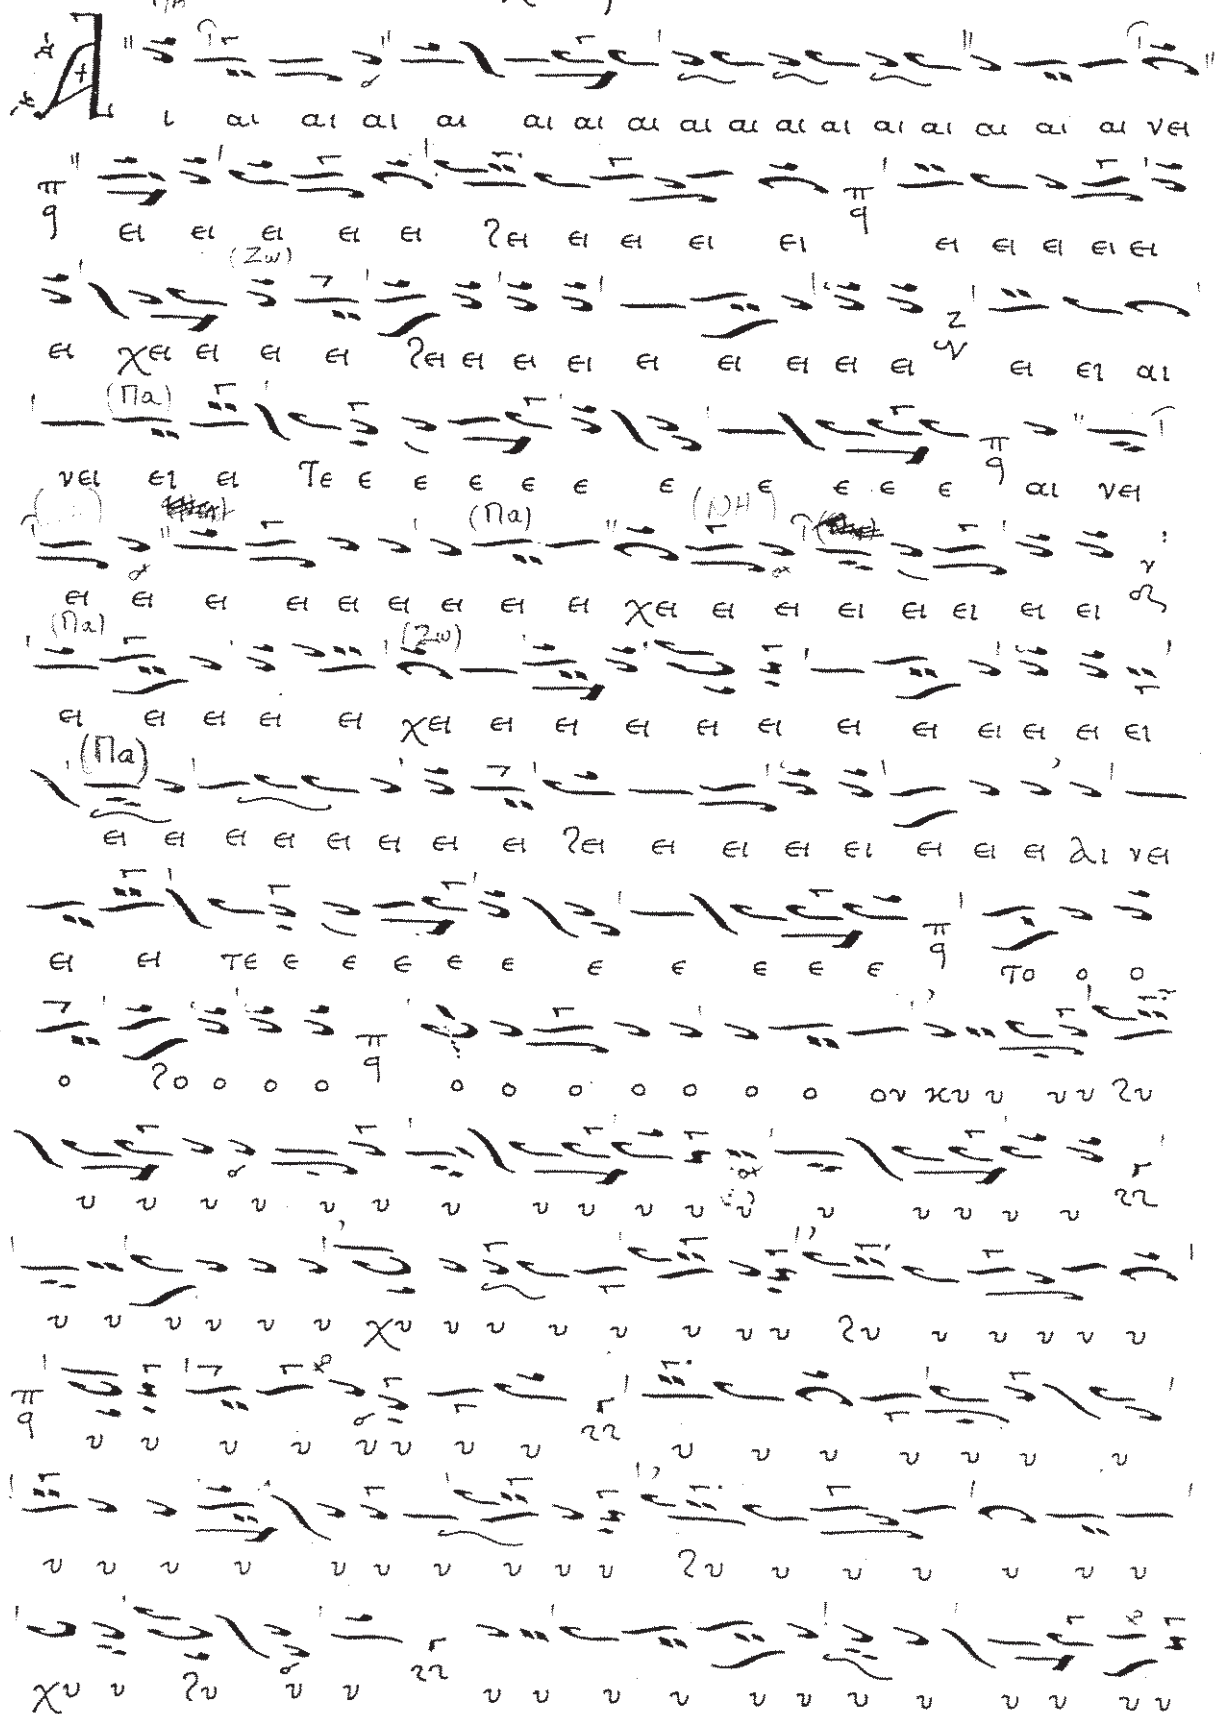 Α ι αι αι αι αι αι αι αι αι αι αι αι αι αι αι αι αι νει
π q ει ει ει ει ει χει ει ει ει ει π q ει ει ει ει ει
(Ζω)
ει χει ει ει ει χει ει ει ει ει ει ει ει ει Ζ ει ει αι
(Πα)
νει ει ει τε ε ε ε ε ε ε ε ε ε ε π q αι νει
(Πα) (ΝΗ)
ει ει ει ει ει ει ει ει ει χει ει ει ει ει ει ει ει ν
(Πα) (Ζω)
ει ει ει ει ει χει ει ει ει ει ει ει ει ει ει ει ει
(Πα)
ει ει ει ει ει ει ει ει χει ει ει ει ει ει ει ει αι νει
ει ει τε ε ε ε ε ε ε ε ε ε ε π q το ο ο
ο χο ο ο ο π q ο ο ο ο ο ο ο ον κυ υ υ υ χυ
υ υ υ υ υ υ υ υ υ υ υ υ υ υ υ υ υ
υ υ υ υ υ υ χυ υ υ υ υ υ υ υ χυ υ υ υ υ υ
π q υ υ υ υ υ υ υ υ υ υ υ υ υ υ υ
υ υ υ υ υ υ υ υ υ υ χυ υ υ υ υ υ υ
χυ υ χυ υ υ υ υ υ υ υ υ υ υ υ υ υ υ